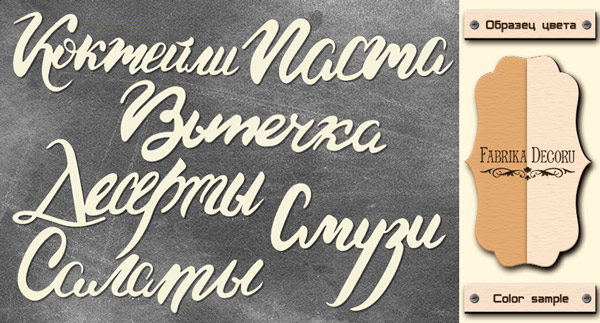 Коктейли Паста
Вытечка
Десерты
Смузи
Салаты
Образец цвета
FABRIKA DECORU
Color sample